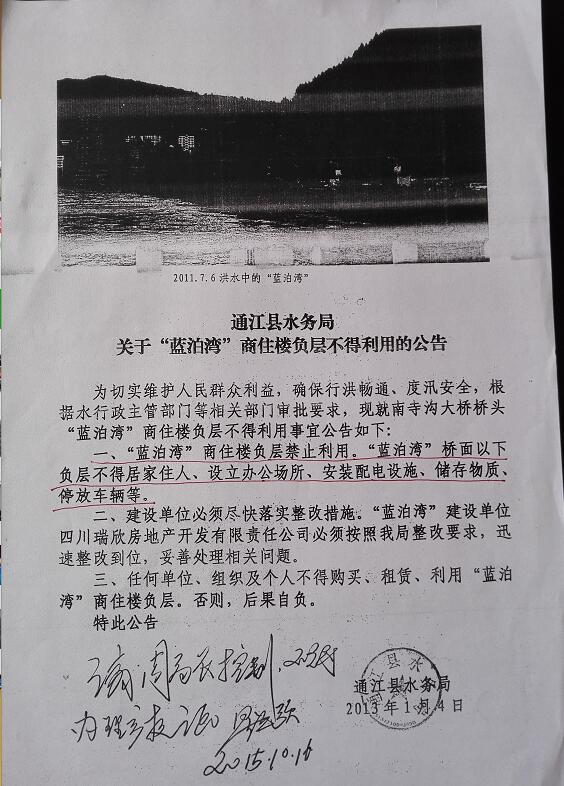 2011.7.6 洪水中的“蓝泊湾”
通江县水务局
关于“蓝泊湾”商住楼负层不得利用的公告
为切实维护人民群众利益，确保行洪畅通、度汛安全，根
据水行政主管部门等相关部门审批要求，现就南寺沟大桥桥头
“蓝泊湾”商住楼负层不得利用事宜公告如下：
一、“蓝泊湾”商住楼负层禁止利用。“蓝泊湾”桥面以下
负层不得居家住人、设立办公场所、安装配电设施、储存物质、
停放车辆等。
二、建设单位必须尽快落实整改措施。“蓝泊湾”建设单位
四川瑞欣房地产开发有限责任公司必须按照我局整改要求，迅
速整改到位，妥善处理相关问题。
三、任何单位、组织及个人不得购买、租赁、利用“蓝泊
湾”商住楼负层。否则，后果自负。
特此公告
请周局长控制，不予
办理产权证
2015.10.1
通江县水务局
2013年1月4日